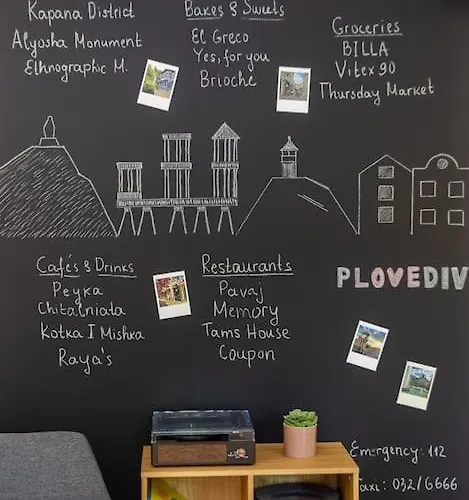 Kapana District
Alyosha Monument
Ethnographic M.
Bakes & Sweets
El Greco
Yes, for you
Brioche
Groceries
BILLA
Vitex 90
Thursday Market
Cafés & Drinks
Peyka
Chitalniata
Kotka I Mishka
Raya's
Restaurants
Pavaj
Memory
Tams House
Coupon
PLOVEDIV
Emergency: 112
Taxi: 032/6666